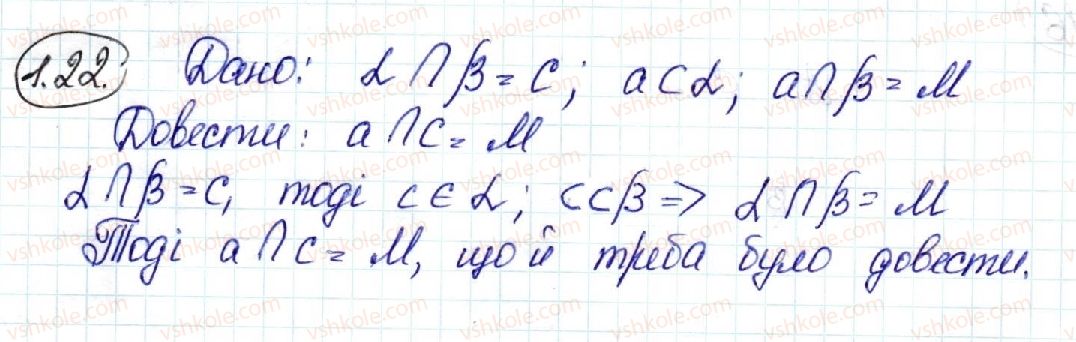 1.22. Дано: α∩β=c; a⊂α; a∩β=M
Довести: a∩c=M
α∩β=c, тоді c∈α; c⊂β=> α∩β=M
Тоді a∩c=M, що й треба було довести.